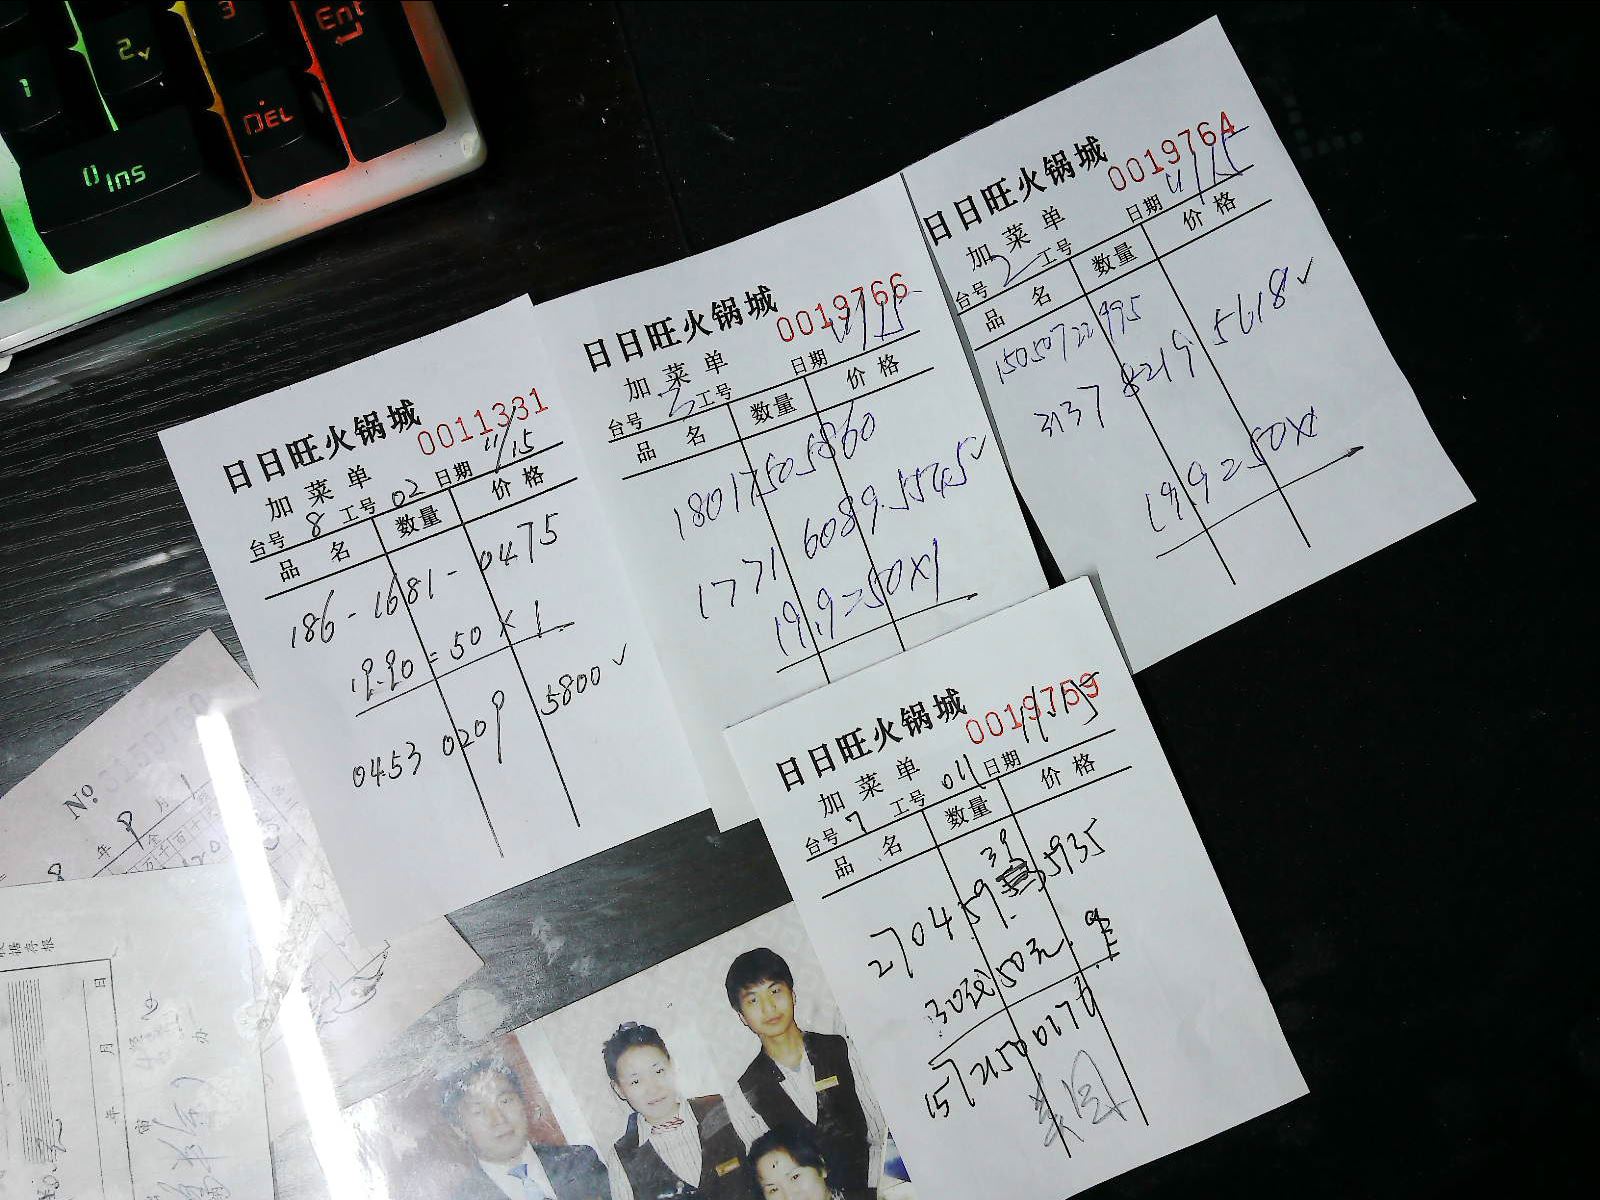 1
2
3
Ent
0 Ins
DEL
日日旺火锅城
0011331
加菜单
日期 11/15
台号 8 工号 02
品 名 数量 价格
186-1681-0475
19.90=50×1
0453 0209 5800 ✓
日日旺火锅城
0019766
加菜单
日期 11/15
台号 3 工号
品 名 数量 价格
18017505860
1771 6089 5545 ✓
19.9=50×1
日日旺火锅城
0019764
加菜单
日期 11/15
台号 2 工号
品 名 数量 价格
15050722995
3137 8219 5618 ✓
19.9=50×1
日日旺火锅城
0019759
加菜单
日期 11/15
台号 7 工号 011
品 名 数量 价格
39
2704 59 5935
50元
美团
No
年 月
年 月 日
办